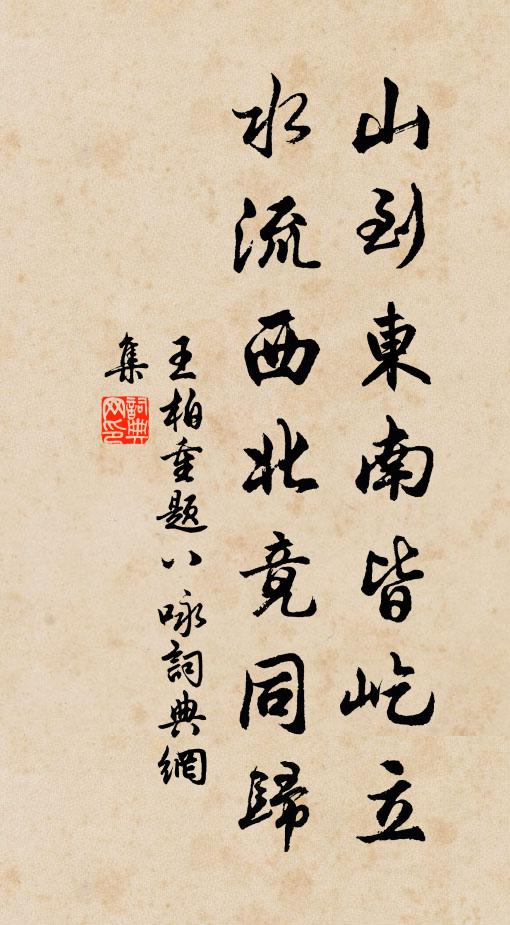 山到東南皆屹立
水流西北竟同歸
王柏重題八咏詞典網
集
詞典網印